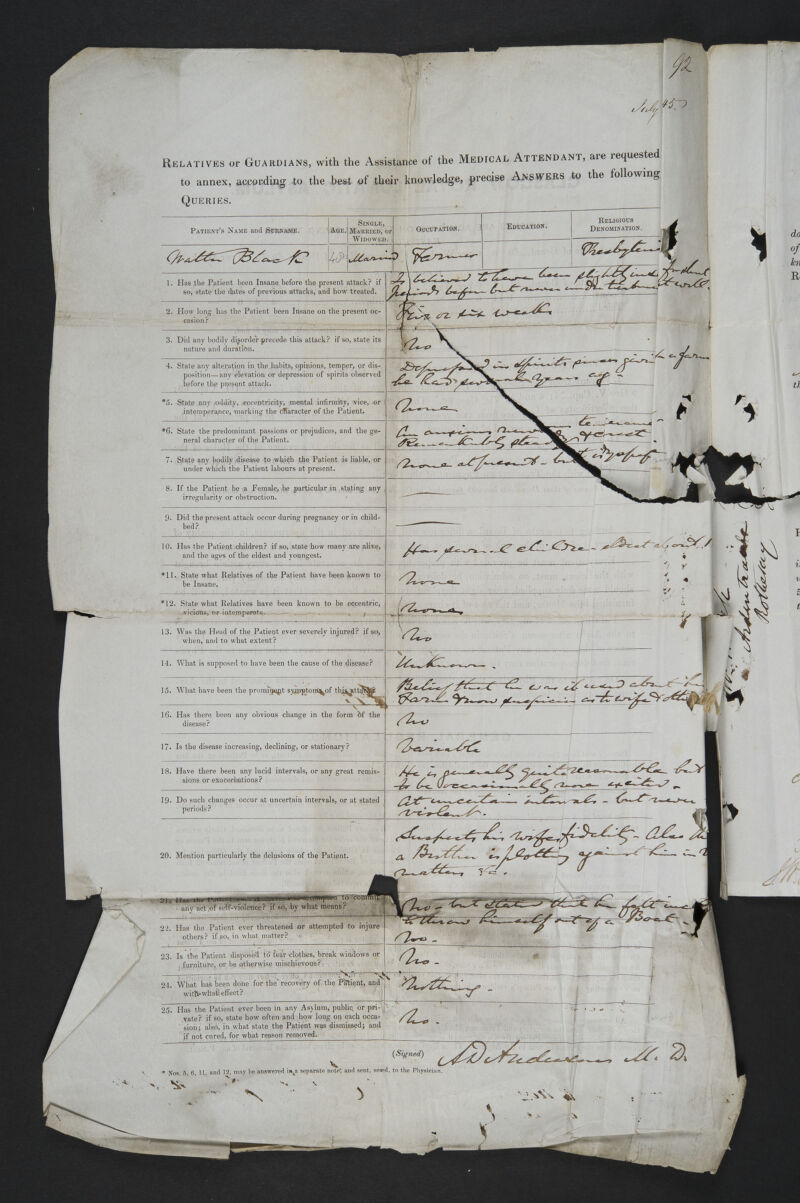 92
July 45.
RELATIVES or GUARDIANS, with the Assistance of the MEDICAL ATTENDANT, are requested
to annex, according to the best of their knowledge, precise ANSWERS to the following
QUERIES.
PATIENT'S NAME and SURNAME. AGE. SINGLE, MARRIED, or WIDOWED. OCCUPATION. EDUCATION. RELIGIOUS DENOMINATION.
Walter Black 48 Married Farmer Presbyteri
1. Has the Patient been Insane before the present attack? if
so, state the dates of previous attacks, and how treated.
Is believed to have been slightly
periods before but never under
2. How long has the Patient been Insane on the present oc-
casion?
Five or six weeks
3. Did any bodily disorder precede this attack? if so, state its
nature and duration.
No
4. State any alteration in the habits, opinions, temper, or dis-
position—any elevation or depression of spirits observed
before the present attack.
Depressed in spirits since giving a farm
he had several years ago
*5. State any oddity, eccentricity, mental infirmity, vice, or
intemperance, marking the character of the Patient.
None
*6. State the predominant passions or prejudices, and the ge-
neral character of the Patient.
An anxious
Remarkably steady & correct.
7. State any bodily disease to which the Patient is liable, or
under which the Patient labours at present.
None at present - but is
8. If the Patient be a Female, be particular in stating any
irregularity or obstruction.
9. Did the present attack occur during pregnancy or in child-
bed?
10. Has the Patient children? if so, state how many are alive,
and the ages of the eldest and youngest.
Has several children - eldest about
*11. State what Relatives of the Patient have been known to
be Insane.
None
*12. State what Relatives have been known to be eccentric,
vicious, or intemperate.
None
13. Was the Head of the Patient ever severely injured? if so,
when, and to what extent?
No
14. What is supposed to have been the cause of the disease?
Unknown.
15. What have been the prominent symptoms of this attack?
Belief that he was ill used about his
Farm & now suspicion as to wife &
16. Has there been any obvious change in the form of the
disease?
No
17. Is the disease increasing, declining, or stationary?
Variable
18. Have there been any lucid intervals, or any great remis-
sions or exacerbations?
He is generally quite reasonable but
to be occasionally more excited.
19. Do such changes occur at uncertain intervals, or at stated
periods?
At uncertain intervals - but never
violent.
20. Mention particularly the delusions of the Patient.
Suspects his wifes fidelity - Also
a Brother is plotting against him in
matters &c.
21.
any act of self-violence? if so, by what means?
No - but stated that he felt
to throw himself out of a Boat -
22. Has the Patient ever threatened or attempted to injure
others? if so, in what matter?
No -
23. Is the Patient disposed to tear clothes, break windows or
furniture, or be otherwise mischievous?
No -
24. What has been done for the recovery of the Patient, and
with what effect?
Nothing -
25. Has the Patient ever been in any Asylum, public or pri-
vate? if so, state how often and how long on each occa-
sion; also, in what state the Patient was dismissed; and
if not cured, for what reason removed.
No -
(Signed) A D Anderson M. D.
* Nos. 5, 6, 11, and 12, may be answered in a separate note, and sent, sealed, to the Physician.
Rothesay